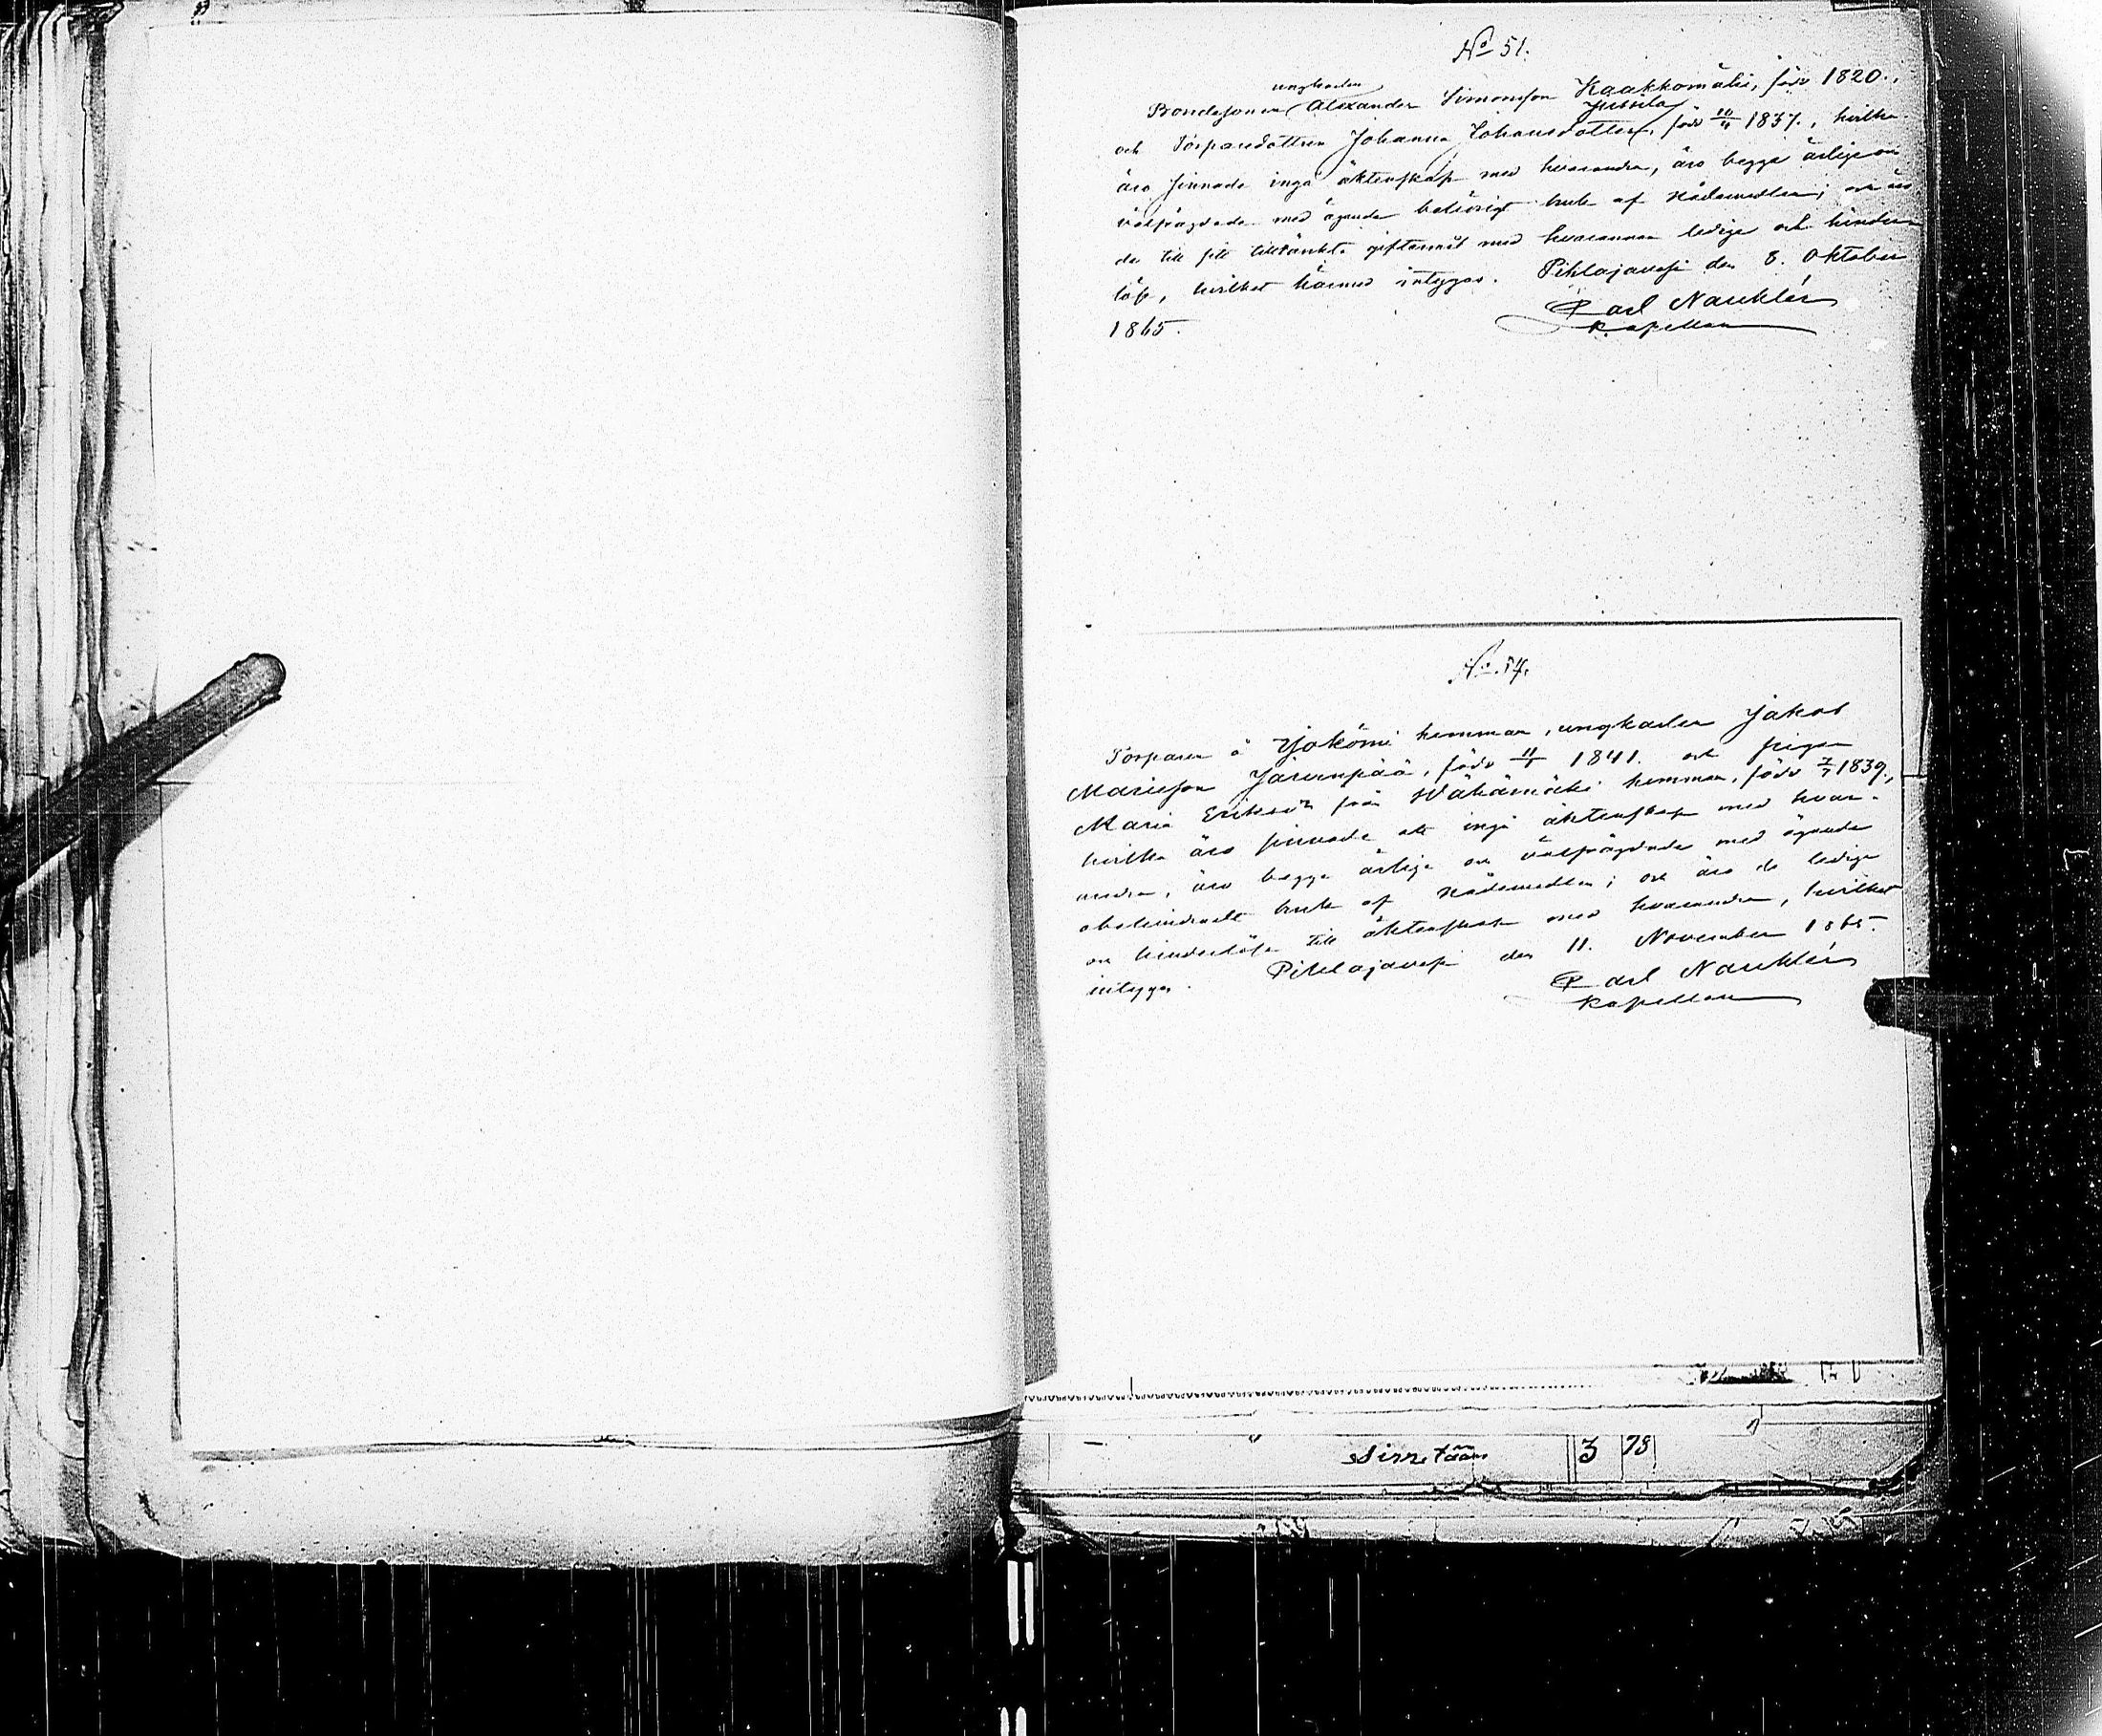 No 51.
ungkarlen
Bondesonen Alexander Simonsson Kaakkomäki, född 1820.,
Jussila
och Torparedottren Johanna Johansdotter, född 20/4 1837., hvilka
äro sinnade ingå äktenskap med hvarandra, äro begge ärlige och
välfrägdade med ägande behörigt bruk af nådemedlen; och äro
de till sitt tilltänkta giftermål med hvarannan ledige och hinders
löse, hvilket härmed intygas. Pihlajavesi den 8. Oktober
1865.
Carl Nauklér
Kapellan
No 57.
Torparen å Ylokömi hemman, ungkarlen Jakob
Mariesson Järvenpää, född 11/1 1841. och pigan
Maria Eriksdr från Wähämäki hemman, född 7/7 1839.,
hvilka äro sinnade att ingå äktenskap med hvar-
andra, äro begge ärlige och välfrägdade med ägande
obehindradt bruk af nådemedlen; och äro de ledige
och hinderslöse till äktenskap med hvarandra, hvilket
intygas. Pihlajavesi den 11. November 1865.
Carl Nauklér
Kapellan
Siirretään 3 78